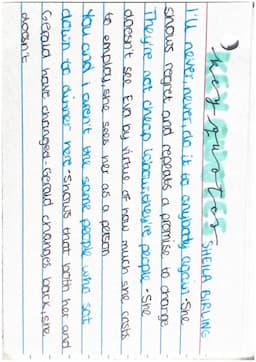 key quotes
SHEILA BIRLING
I'll never, never do it to anybody again - She
shows regret and repeats a promise to change
They're not cheap labour, they're people - She
doesn't see Eva by virtue of how much she costs
to employ, she sees her as a person
You and I aren't the same people who sat
down to dinner here - Shows that both her and
Gerald have changed - Gerald changes back, she
doesn't